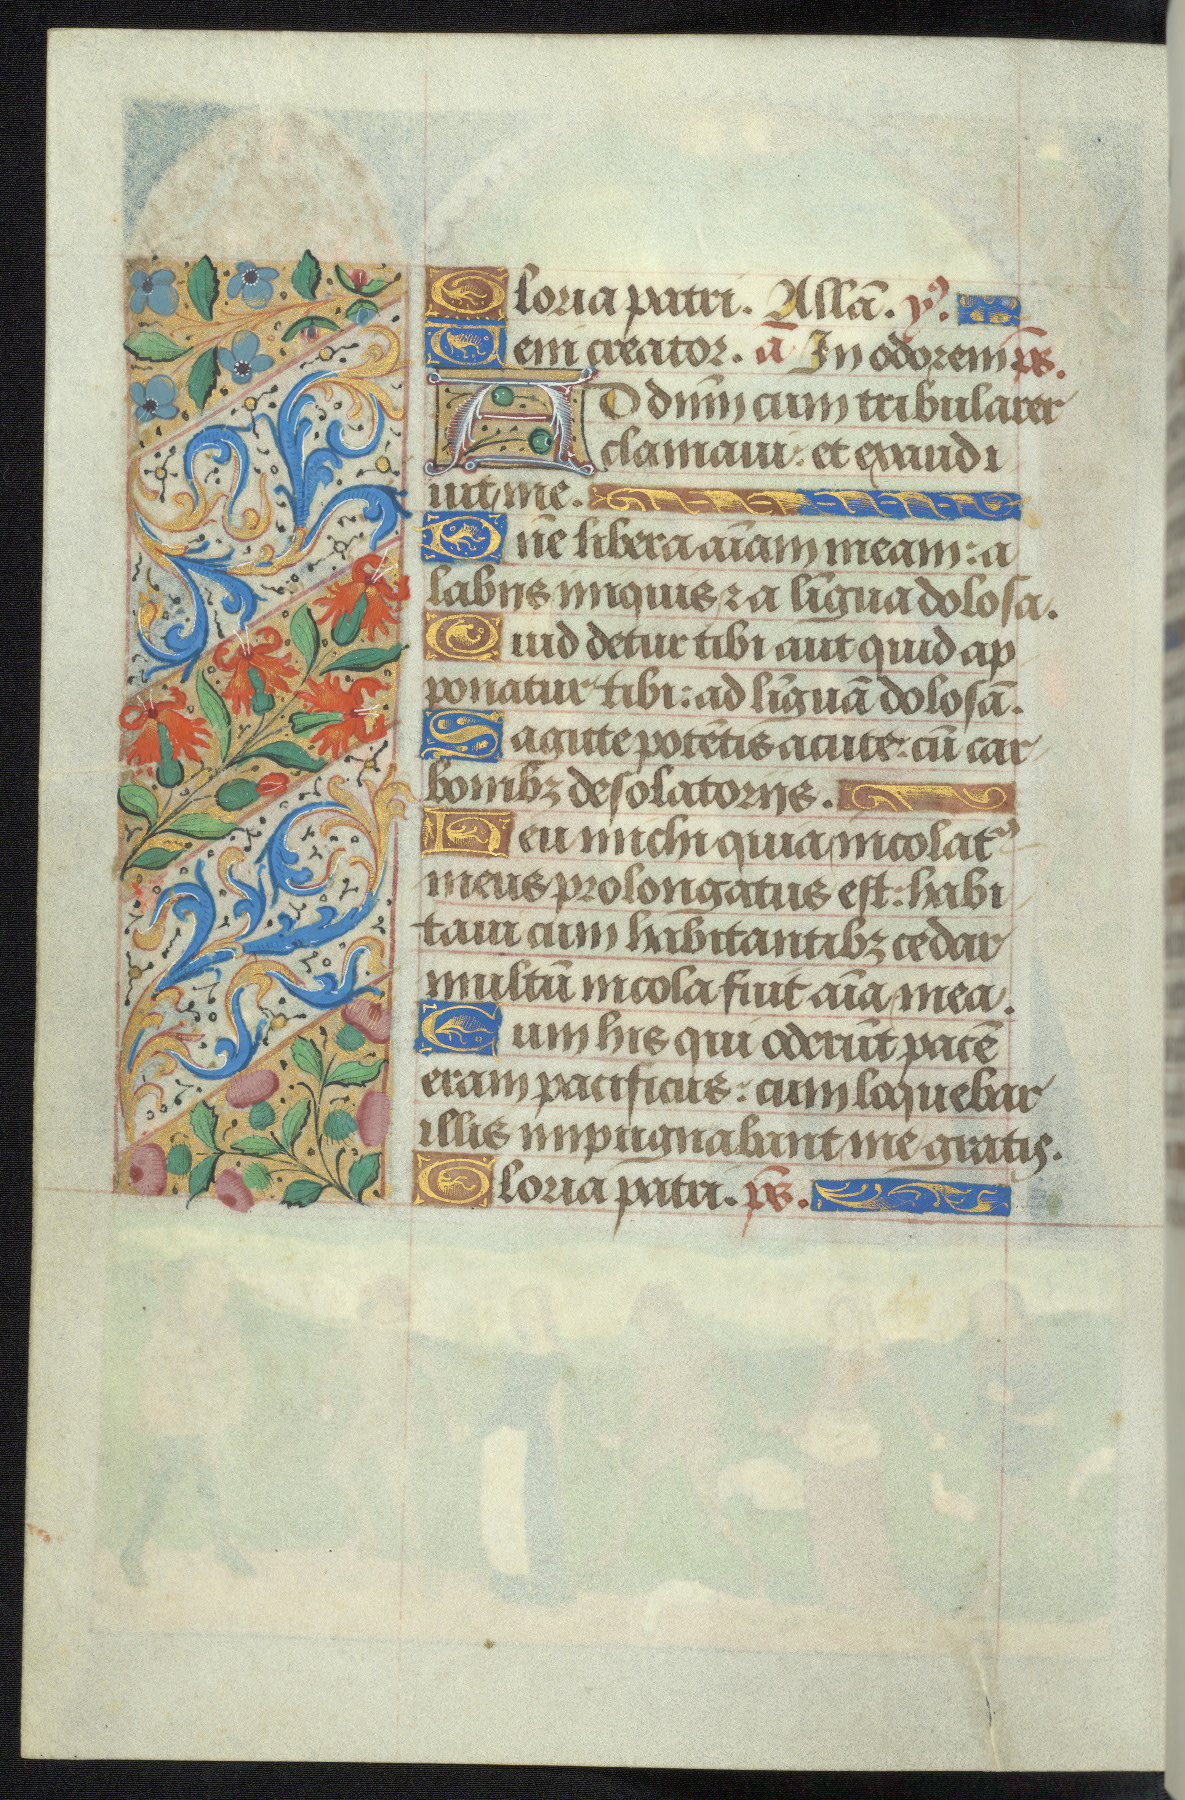 Gloria patri. Allā. ym̄.
Veni creator. ā In odorem p̄s.
AD dn̄m cum tribularer
clamaui: et exaudi
uit me.
Dn̄e libera aīam meam: a
labijs iniquis ⁊ a līgua dolosa.
Quid detur tibi aut quid ap
ponatur tibi: ad līguā dolosā.
Sagitte potētis acute: cū car
bonibꝫ desolatorijs.
Heu michi quia incolatꝰ
meus prolongatus est: habi
taui cum habitantibꝫ cedar
multū incola fuit aīa mea.
Cum his qui oderūt pacē
eram pacificus: cum loquebar
illis inpugnabant me gratis.
Gloria patri. p̄s.